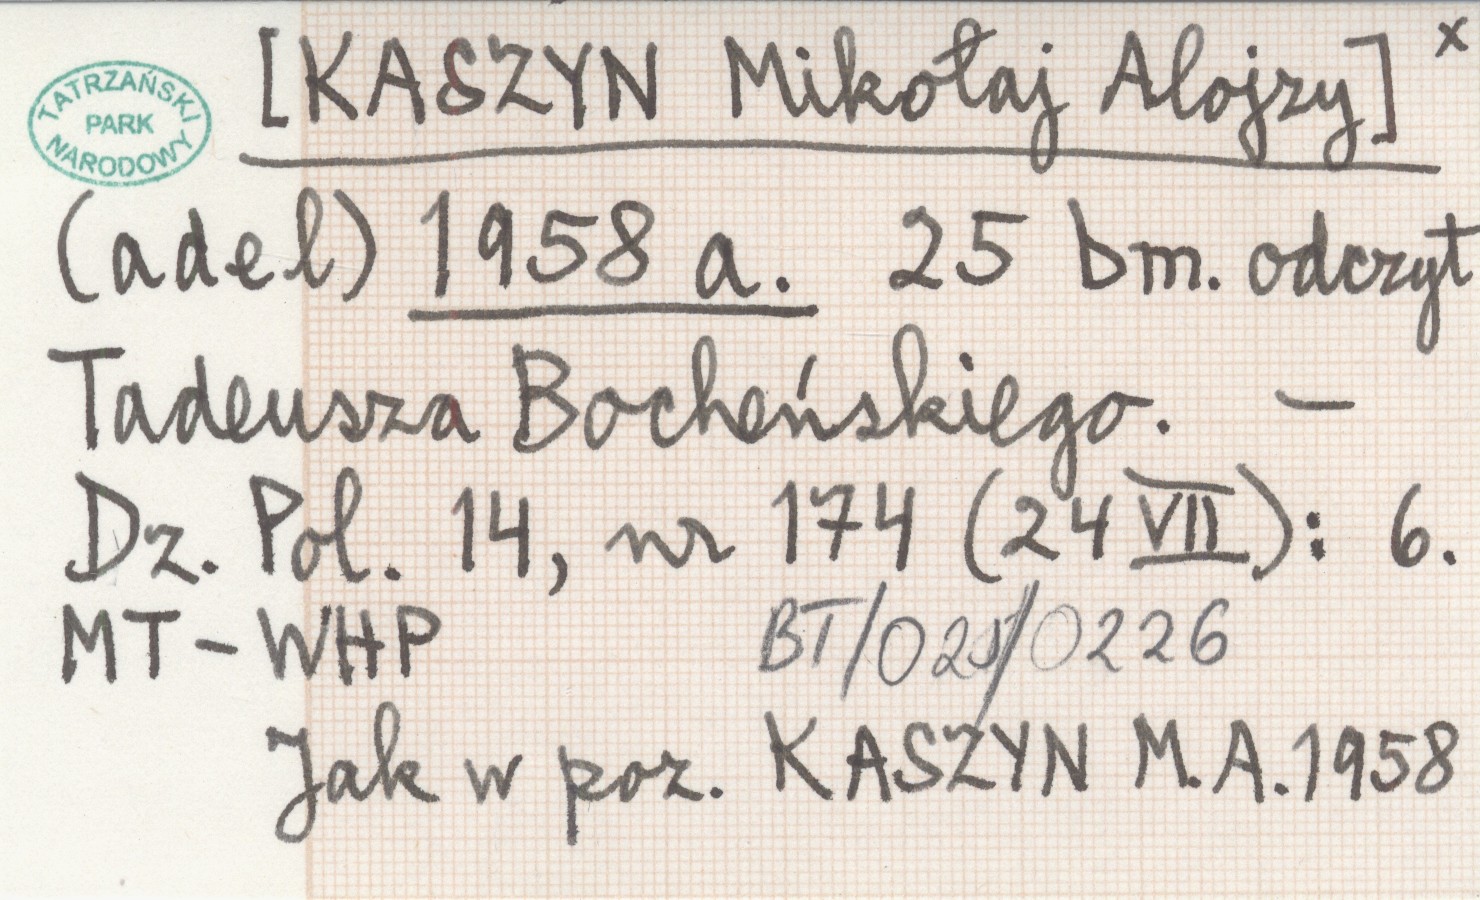 TATRZAŃSKI
PARK
NARODOWY
[KASZYN Mikołaj Alojzy] x
(adel) 1958 a. 25 bm. odczyt
Tadeusza Bocheńskiego. —
Dz. Pol. 14, nr 174 (24 VII): 6.
MT-WHP
BT/025/0226
Jak w poz. KASZYN M.A. 1958